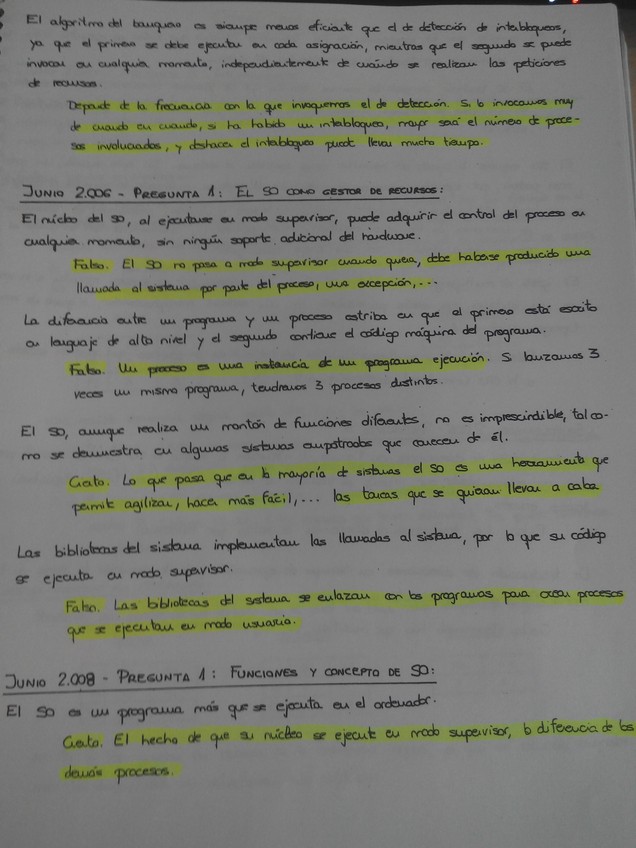 El algoritmo del banquero es siempre menos eficiente que el de detección de interbloqueos,
ya que el primero se debe ejecutar en cada asignación, mientras que el segundo se puede
invocar en cualquier momento, independientemente de cuándo se realizan las peticiones
de recursos.
Depende de la frecuencia con la que invoquemos el de detección. Si lo invocamos muy
de cuando en cuando, si ha habido un interbloqueo, mayor será el número de proce-
sos involucrados, y deshacer el interbloqueo puede llevar mucho tiempo.
JUNIO 2.006 - PREGUNTA 1: EL SO COMO GESTOR DE RECURSOS:
El núcleo del SO, al ejecutarse en modo supervisor, puede adquirir el control del proceso en
cualquier momento, sin ningún soporte adicional del hardware.
Falso. El SO no pasa a modo supervisor cuando quiera, debe haberse producido una
llamada al sistema por parte del proceso, una excepción,...
La diferencia entre un programa y un proceso estriba en que el primero está escrito
en lenguaje de alto nivel y el segundo contiene el código máquina del programa.
Falso. Un proceso es una instancia de un programa ejecución. Si lanzamos 3
veces un mismo programa, tendremos 3 procesos distintos.
El SO, aunque realiza un montón de funciones diferentes, no es imprescindible, tal co-
mo se demuestra en algunos sistemas empotrados que carecen de él.
Cierto. Lo que pasa que en la mayoría de sistemas el SO es una herramienta que
permite agilizar, hacer más fácil,... las tareas que se quieran llevar a cabo.
Las bibliotecas del sistema implementan las llamadas al sistema, por lo que su código
se ejecuta en modo supervisor.
Falso. Las bibliotecas del sistema se enlazan con los programas para crear procesos
que se ejecutan en modo usuario.
JUNIO 2.008 - PREGUNTA 1: FUNCIONES Y CONCEPTO DE SO:
El SO es un programa más que se ejecuta en el ordenador.
Cierto. El hecho de que su núcleo se ejecute en modo supervisor, lo diferencia de los
demás procesos.